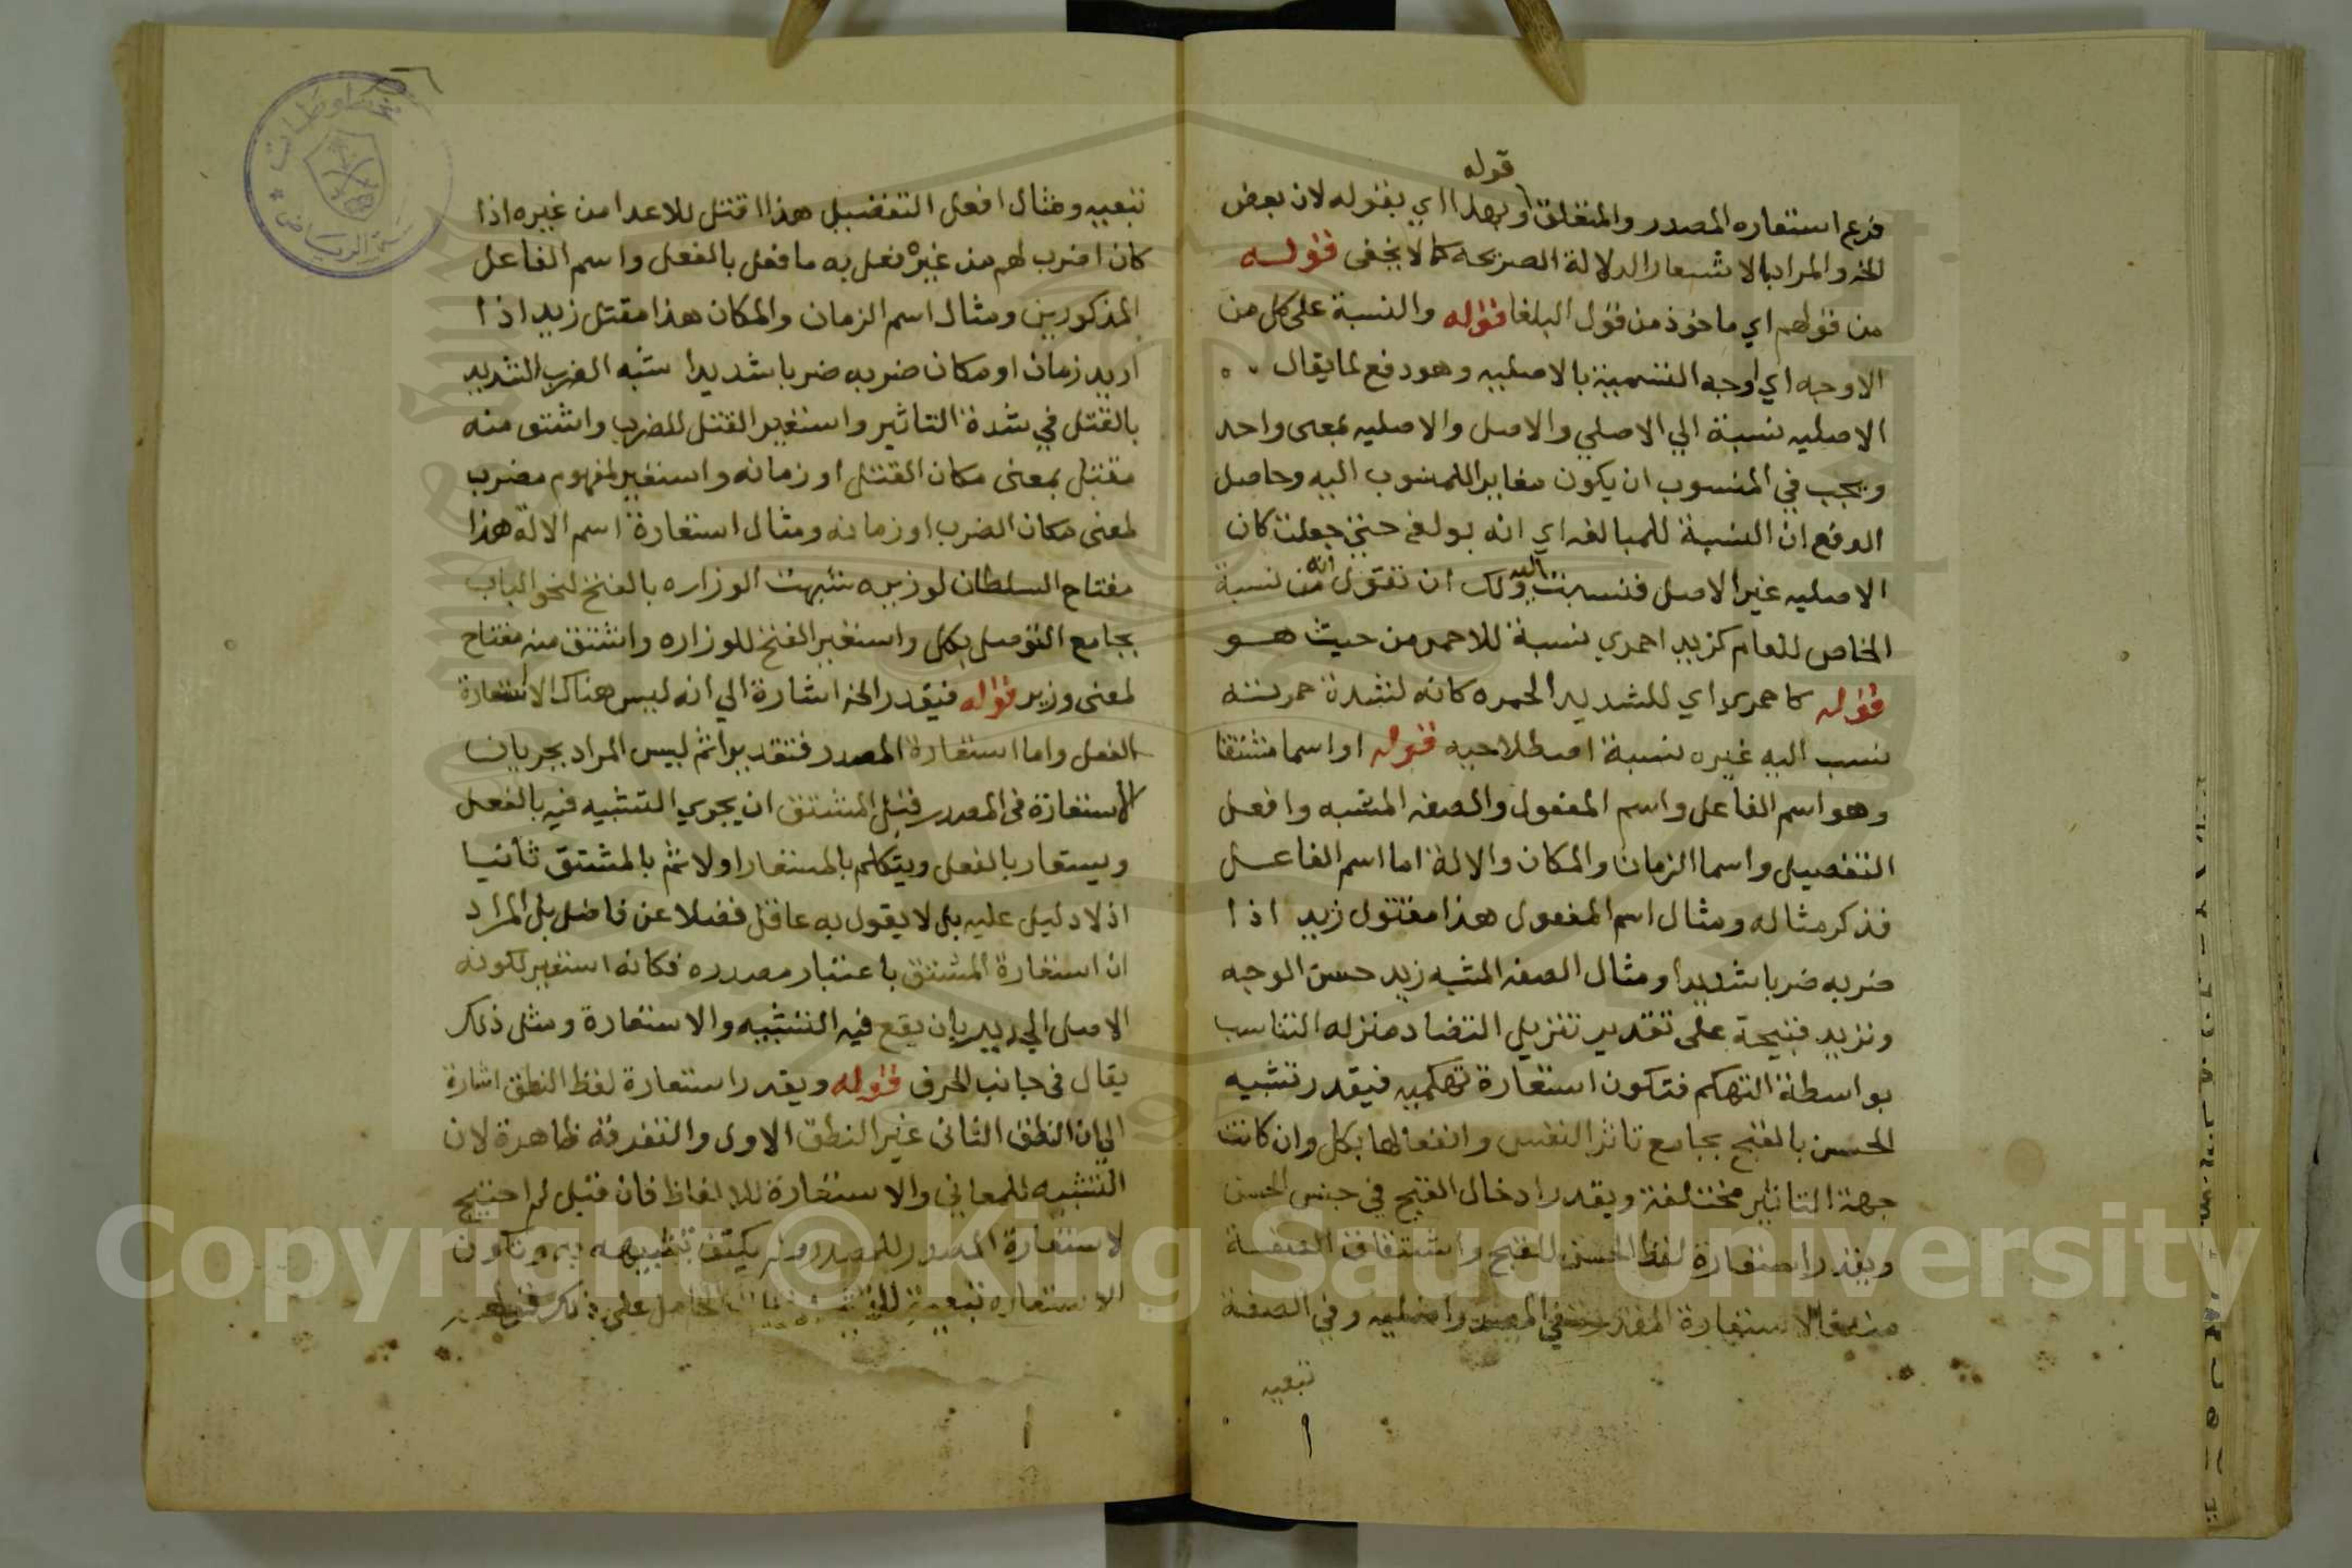 قوله
فرع استعاره المصدر والمتعلق وبهذا اي بقوله لان بعض
الخ والمراد بالاشعار الدلالة الصريحه كما لا يخفى قوله
من قولهم اي ماخوذ من قول البلغا قوله والنسبة على كل من
الاوجه اي اوجه التسمية بالاصليه وهو دفع لما يقال
الاصليه نسبة الي الاصلي والاصل والاصليه بمعنى واحد
ويجب في المنسوب ان يكون مغايرا للمنسوب اليه وحاصل
الدفع ان النسبة للمبالغه اي انه بولغ حتى جعلت كان
الاصليه غير الاصل فنسبت اليه ولك ان تقول انه من نسبة
الخاص للعام كزيد احمدي نسبة للاحمر من حيث هو
قوله كاحمري اي للشديد الحمره كانه لشدة حمرته
نسب اليه غيره نسبة اصطلاحيه قوله او اسما مشتقا
وهو اسم الفاعل واسم المفعول والصفه المشبه وافعل
التفضيل واسما الزمان والمكان والالة اما اسم الفاعل
فذكر مثاله ومثال اسم المفعول هذا مقتول زيد اذا
ضربه ضربا شديدا ومثال الصفه المشبه زيد حسن الوجه
ونزيد قبيحة على تقدير تنزيل التضاد منزله التناسب
بواسطة التهكم فتكون استعارة تهكميه فيقدر تشبيه
الحسن بالقبح بجامع تاثر النفس وانفعالها بكل وان كانت
جهة التاثير مختلفة ويقدر ادخال القبح في جنس الحسن
ويقدر استعارة لفظ الحسن للقبح واشتقاق الصفة
منه فالاستعارة المقدرة في المصدر اصليه وفي الصفة
تبعيه
تبعيه ومثال افعل التفضيل هذا اقتل للاعدا من غيره اذا
كان اضرب لهم من غيره نفعل به ما فعل بالفعل واسم الفاعل
المذكورين ومثال اسم الزمان والمكان هذا مقتل زيد اذا
اريد زمان او مكان ضربه ضربا شديدا شبه الضرب الشديد
بالقتل في شدة التاثير واستعير القتل للضرب واشتق منه
مقتل بمعنى مكان القتل او زمانه واستعير لمفهوم مضرب
بمعنى مكان الضرب او زمانه ومثال استعارة اسم الالة هذا
مفتاح السلطان لوزيره شبهت الوزاره بالفتح لنحو الباب
بجامع التوصل بكل واستعير الفتح للوزاره واشتق منه مفتاح
بمعنى وزير قوله فيقدر الخ اشارة الي انه ليس هناك الا استعارة
الفعل واما استعارة المصدر فتقدير اثم ليس المراد بجريان
الاستعارة في المصدر قبل المشتق ان يجري التشبيه فيه بالفعل
ويستعار بالفعل ويتكلم بالمستعار اولا ثم بالمشتق ثانيا
اذ لا دليل عليه بل لا يقول به عاقل فضلا عن فاضل بل المراد
ان استعارة المشتق باعتبار مصدره فكانه استعير لكونه
الاصل الجدير بان يقع فيه التشبيه والاستعارة ومثل ذلك
يقال في جانب الحرف قوله ويقدر استعارة لفظ النطق اشارة
الي ان النطق الثاني غير النطق الاول والتفرقة ظاهرة لان
التشبيه للمعاني والاستعارة للالفاظ فان قيل لم احتيج
لاستعارة المصدر للمصدر ولم يكتف بتشبيهه به وتكون
الاستعاره تبعية الحامل على ذلك